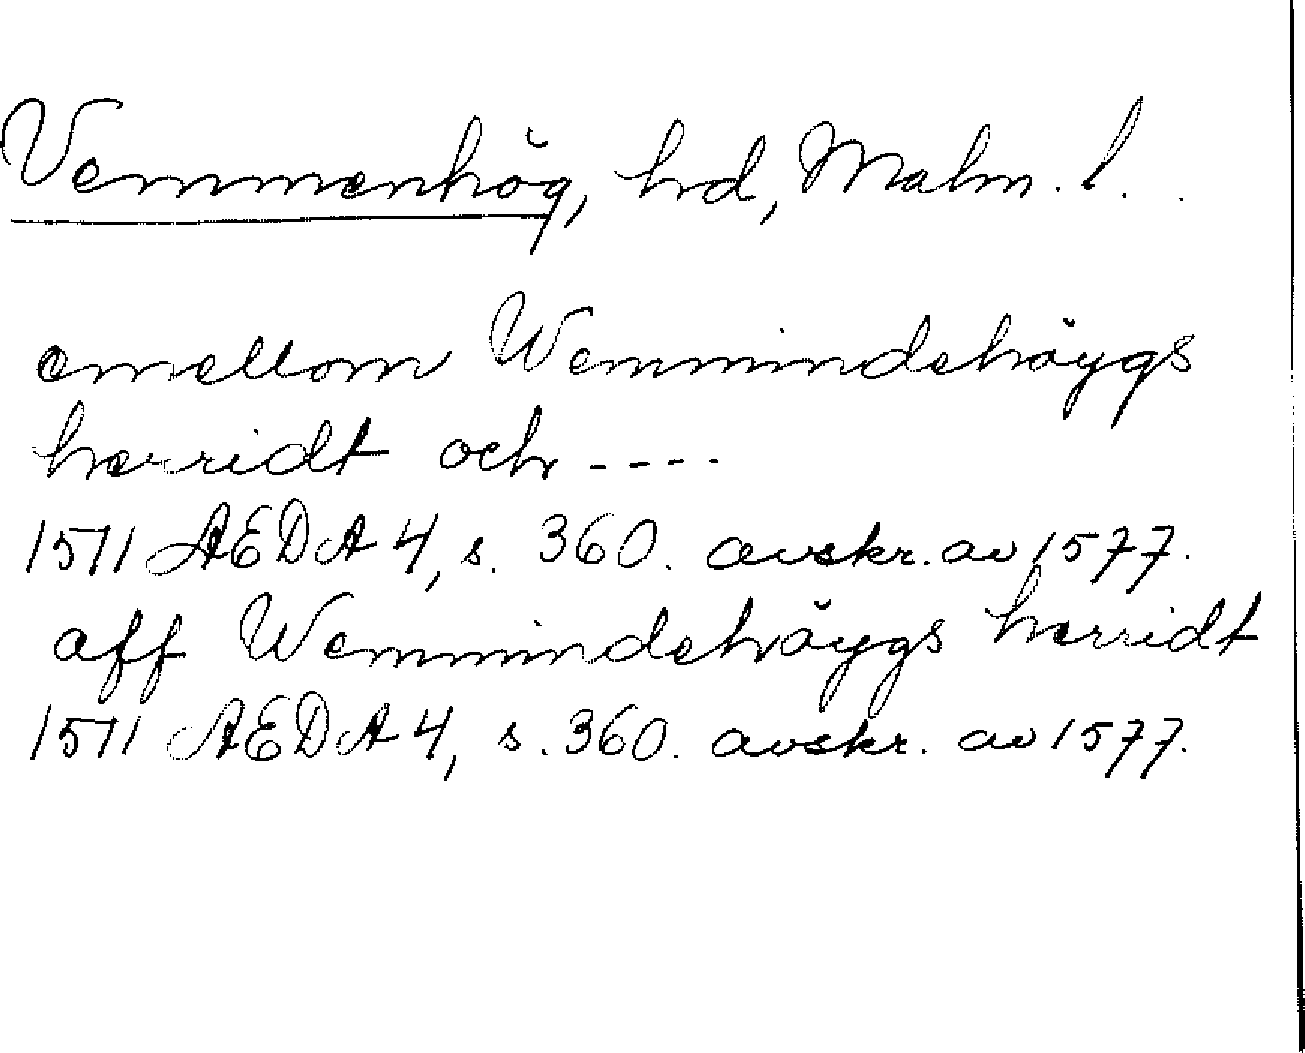 Vemmenhög, hrd, Malm. l.
emellom Wemmindehöygs
herridt och ----
1511 AEDA 4, s. 360. avskr. av 1577.
aff Wemmindehöygs herridt
1511 AEDA 4, s. 360. avskr. av 1577.